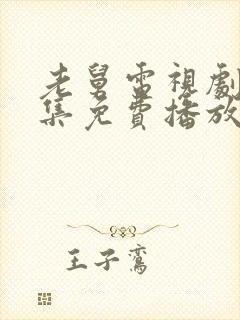 老舅電視劇
集免費播放
王子鸞